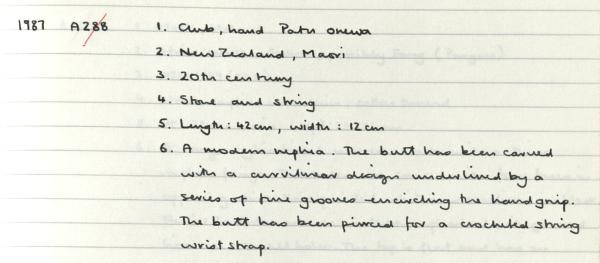 1987 A288 1. Club, hand Patu onewa
2. New Zealand, Maori
3. 20th century
4. Stone and string
5. Length: 42cm, width: 12cm
6. A modern replica. The butt has been carved
with a curvilinear design underlined by a
series of fine grooves encircling the handgrip.
The butt has been pierced for a crocheted string
wrist strap.